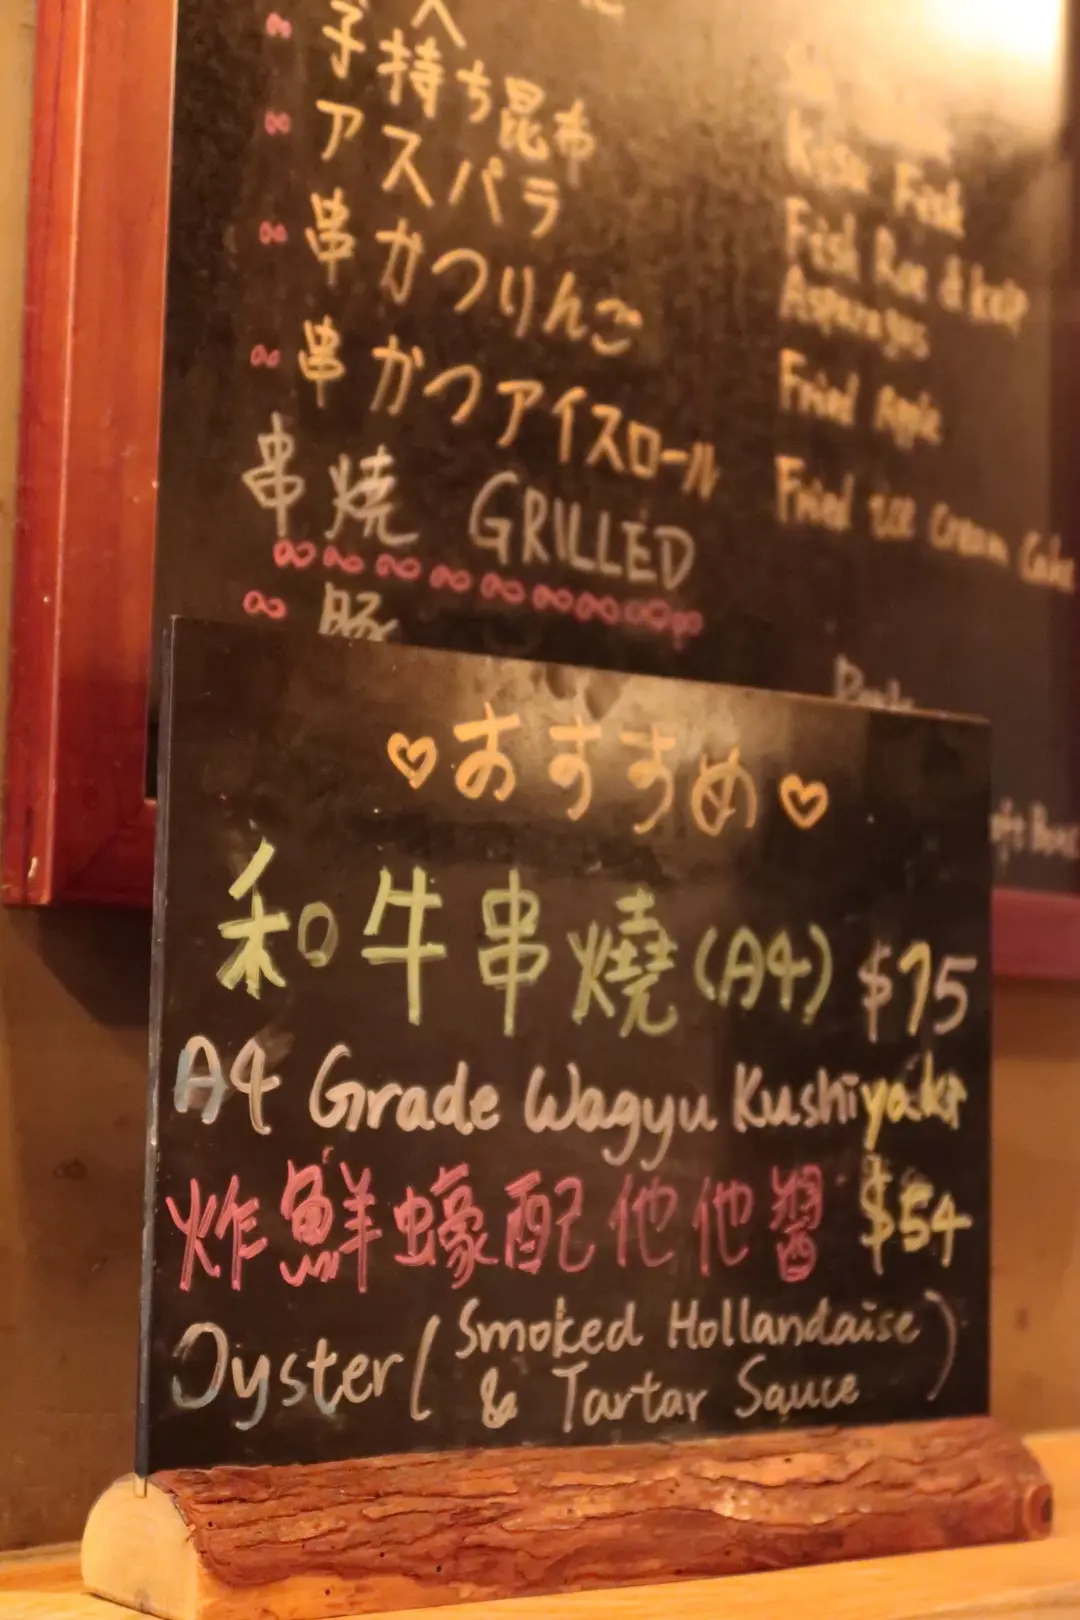 子持ち昆布
Kisu Fish
アスパラ
Fish Roe & kelp
Asparagus
串かつりんご
Fried Apple
串かつアイスロール
Fried ice cream Cake
串燒 GRILLED
豚
Pork
♡おすすめ♡
和牛串燒(A4) $75
A4 Grade Wagyu Kushiyaki
炸鮮蠔配他他醬 $54
Oyster (Smoked Hollandaise
& Tartar Sauce)